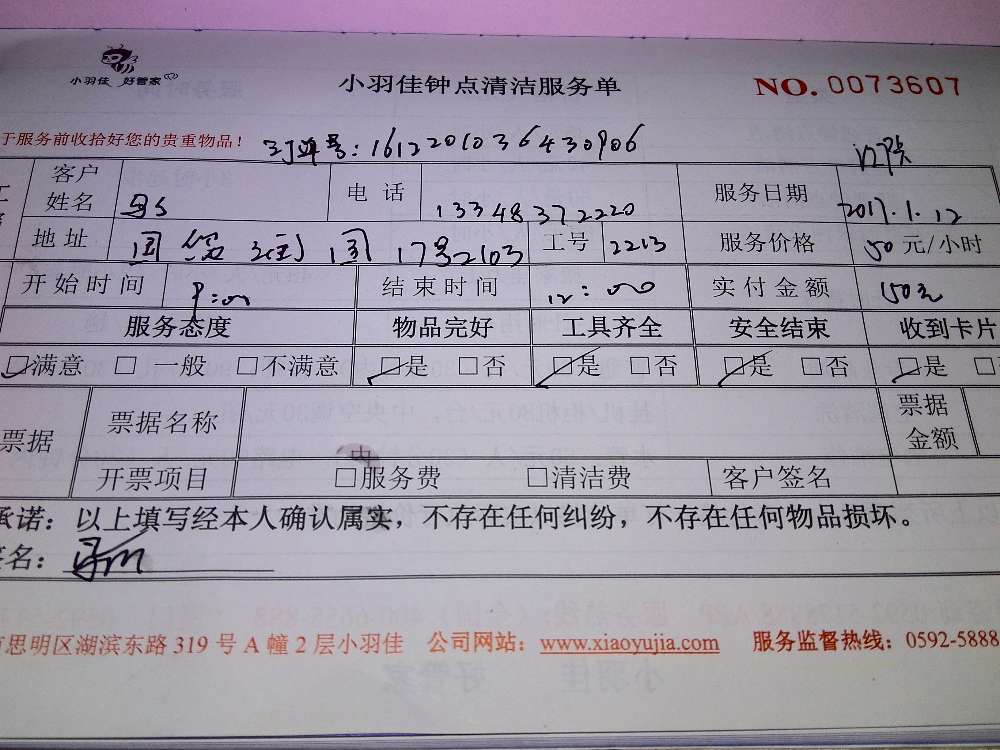 小羽佳 好管家
小羽佳钟点清洁服务单
NO. 0073607
于服务前收拾好您的贵重物品!
订单号:1612201036430906
客户姓名 电话 13348372220 服务日期 2017.1.12
地址 17号2103 工号 2213 服务价格 50元/小时
开始时间 9:00 结束时间 12:00 实付金额 150元
服务态度 物品完好 工具齐全 安全结束 收到卡片
☑满意 □一般 □不满意 ☑是 □否 ☑是 □否 ☑是 □否 ☑是 □
票据 票据名称 票据金额
开票项目 □服务费 □清洁费 客户签名
承诺:以上填写经本人确认属实,不存在任何纠纷,不存在任何物品损坏。
签名:
思明区湖滨东路 319 号 A 幢 2 层小羽佳 公司网站:www.xiaoyujia.com 服务监督热线:0592-5888